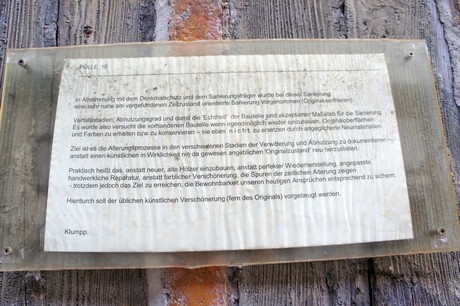 RÜLLE 16
In Abstimmung mit dem Denkmalschutz und dem Sanierungsträger wurde bei dieser Sanierung
eine sehr nahe am vorgefundenen Zeitzustand orientierte Sanierung vorgenommen (Original-einfrieren).
Verfallstadien, Abnutzungsgrad und damit die 'Echtheit' der Bauteile sind akzeptierter Maßstab für die Sanierung.
Es wurde also versucht die vorhandenen Bauteile wenn irgendmöglich wieder einzubauen, Originaloberflächen
und Farben zu erhalten bzw. zu konservieren – sie eben n i c h t zu ersetzen durch angeglichene Neumaterialien.
Ziel ist es die Alterungsprozesse in den verschiedenen Stadien der Verwitterung und Abnutzung zu dokumentieren -
anstatt einen künstlichen in Wirklichkeit nie da gewesen angeblichen 'Originalzustand' neu herzustellen.
Praktisch heißt das, anstatt neuer, alte Hölzer einzubauen, anstatt perfekter Wiederherstellung, angepasste
handwerkliche Reparatur, anstatt farblicher Verschönerung, die Spuren der zeitlichen Alterung zeigen
- trotzdem jedoch das Ziel zu erreichen, die Bewohnbarkeit unseren heutigen Ansprüchen entsprechend zu sichern.
Hierdurch soll der üblichen künstlichen Verschönerung (fern des Originals) vorgebeugt werden.
Klumpp.